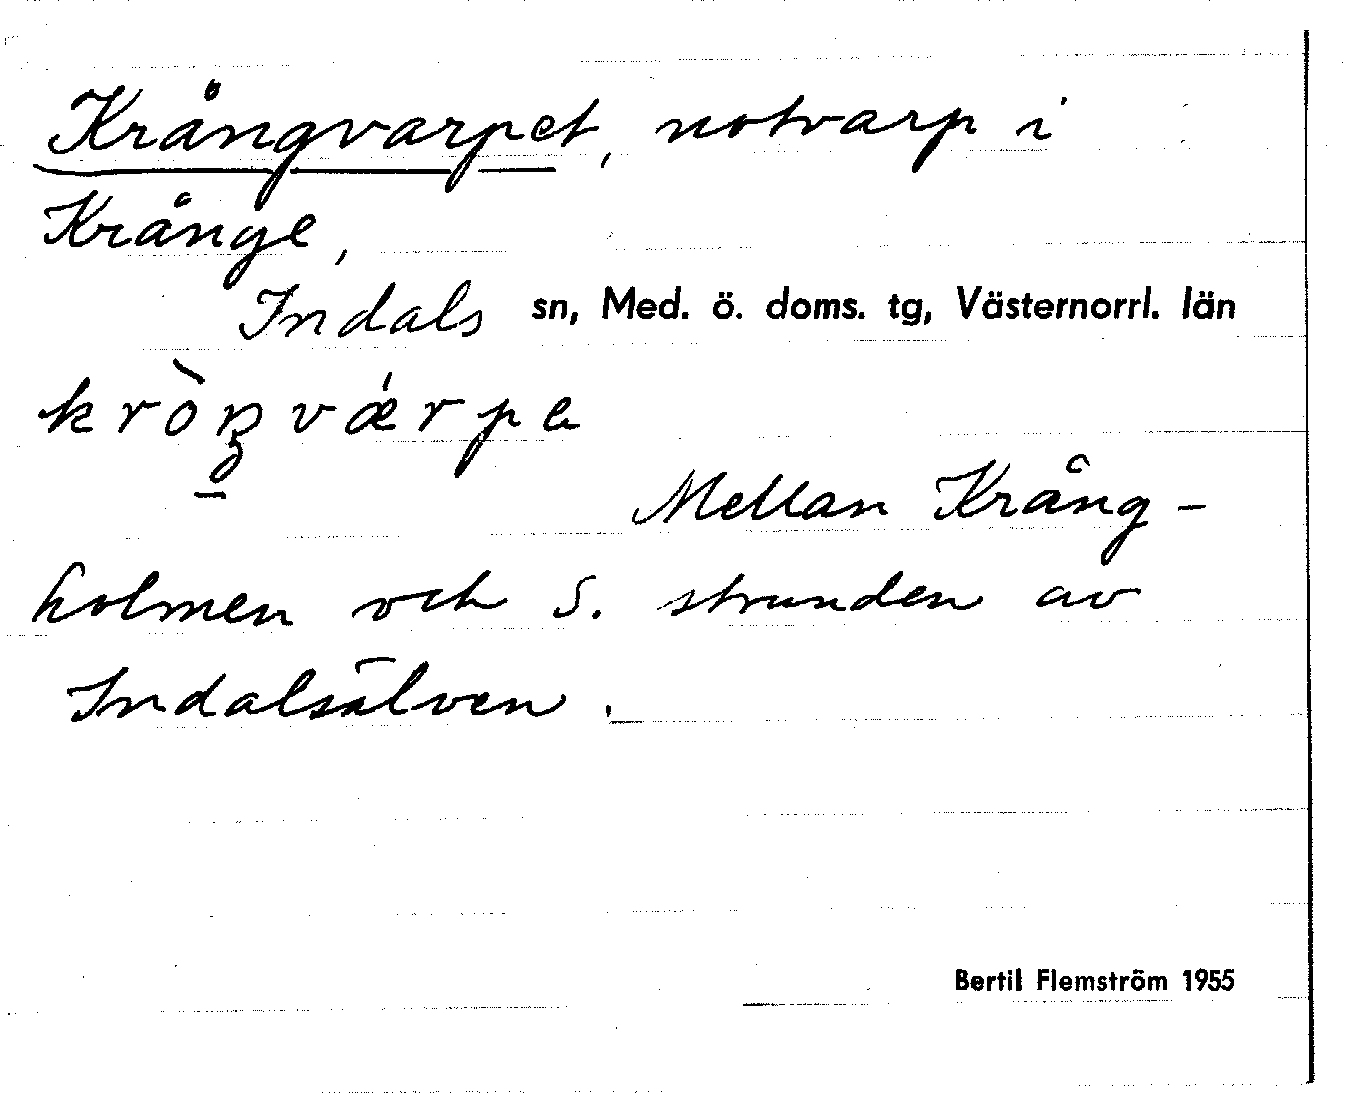 Krångvarpet, notvarp i
Krånge,
Indals sn, Med. ö. doms. tg, Västernorrl. län
kròŋværpe
Mellan Krång-
holmen och S. stranden av
Indalsälven.
Bertil Flemström 1955